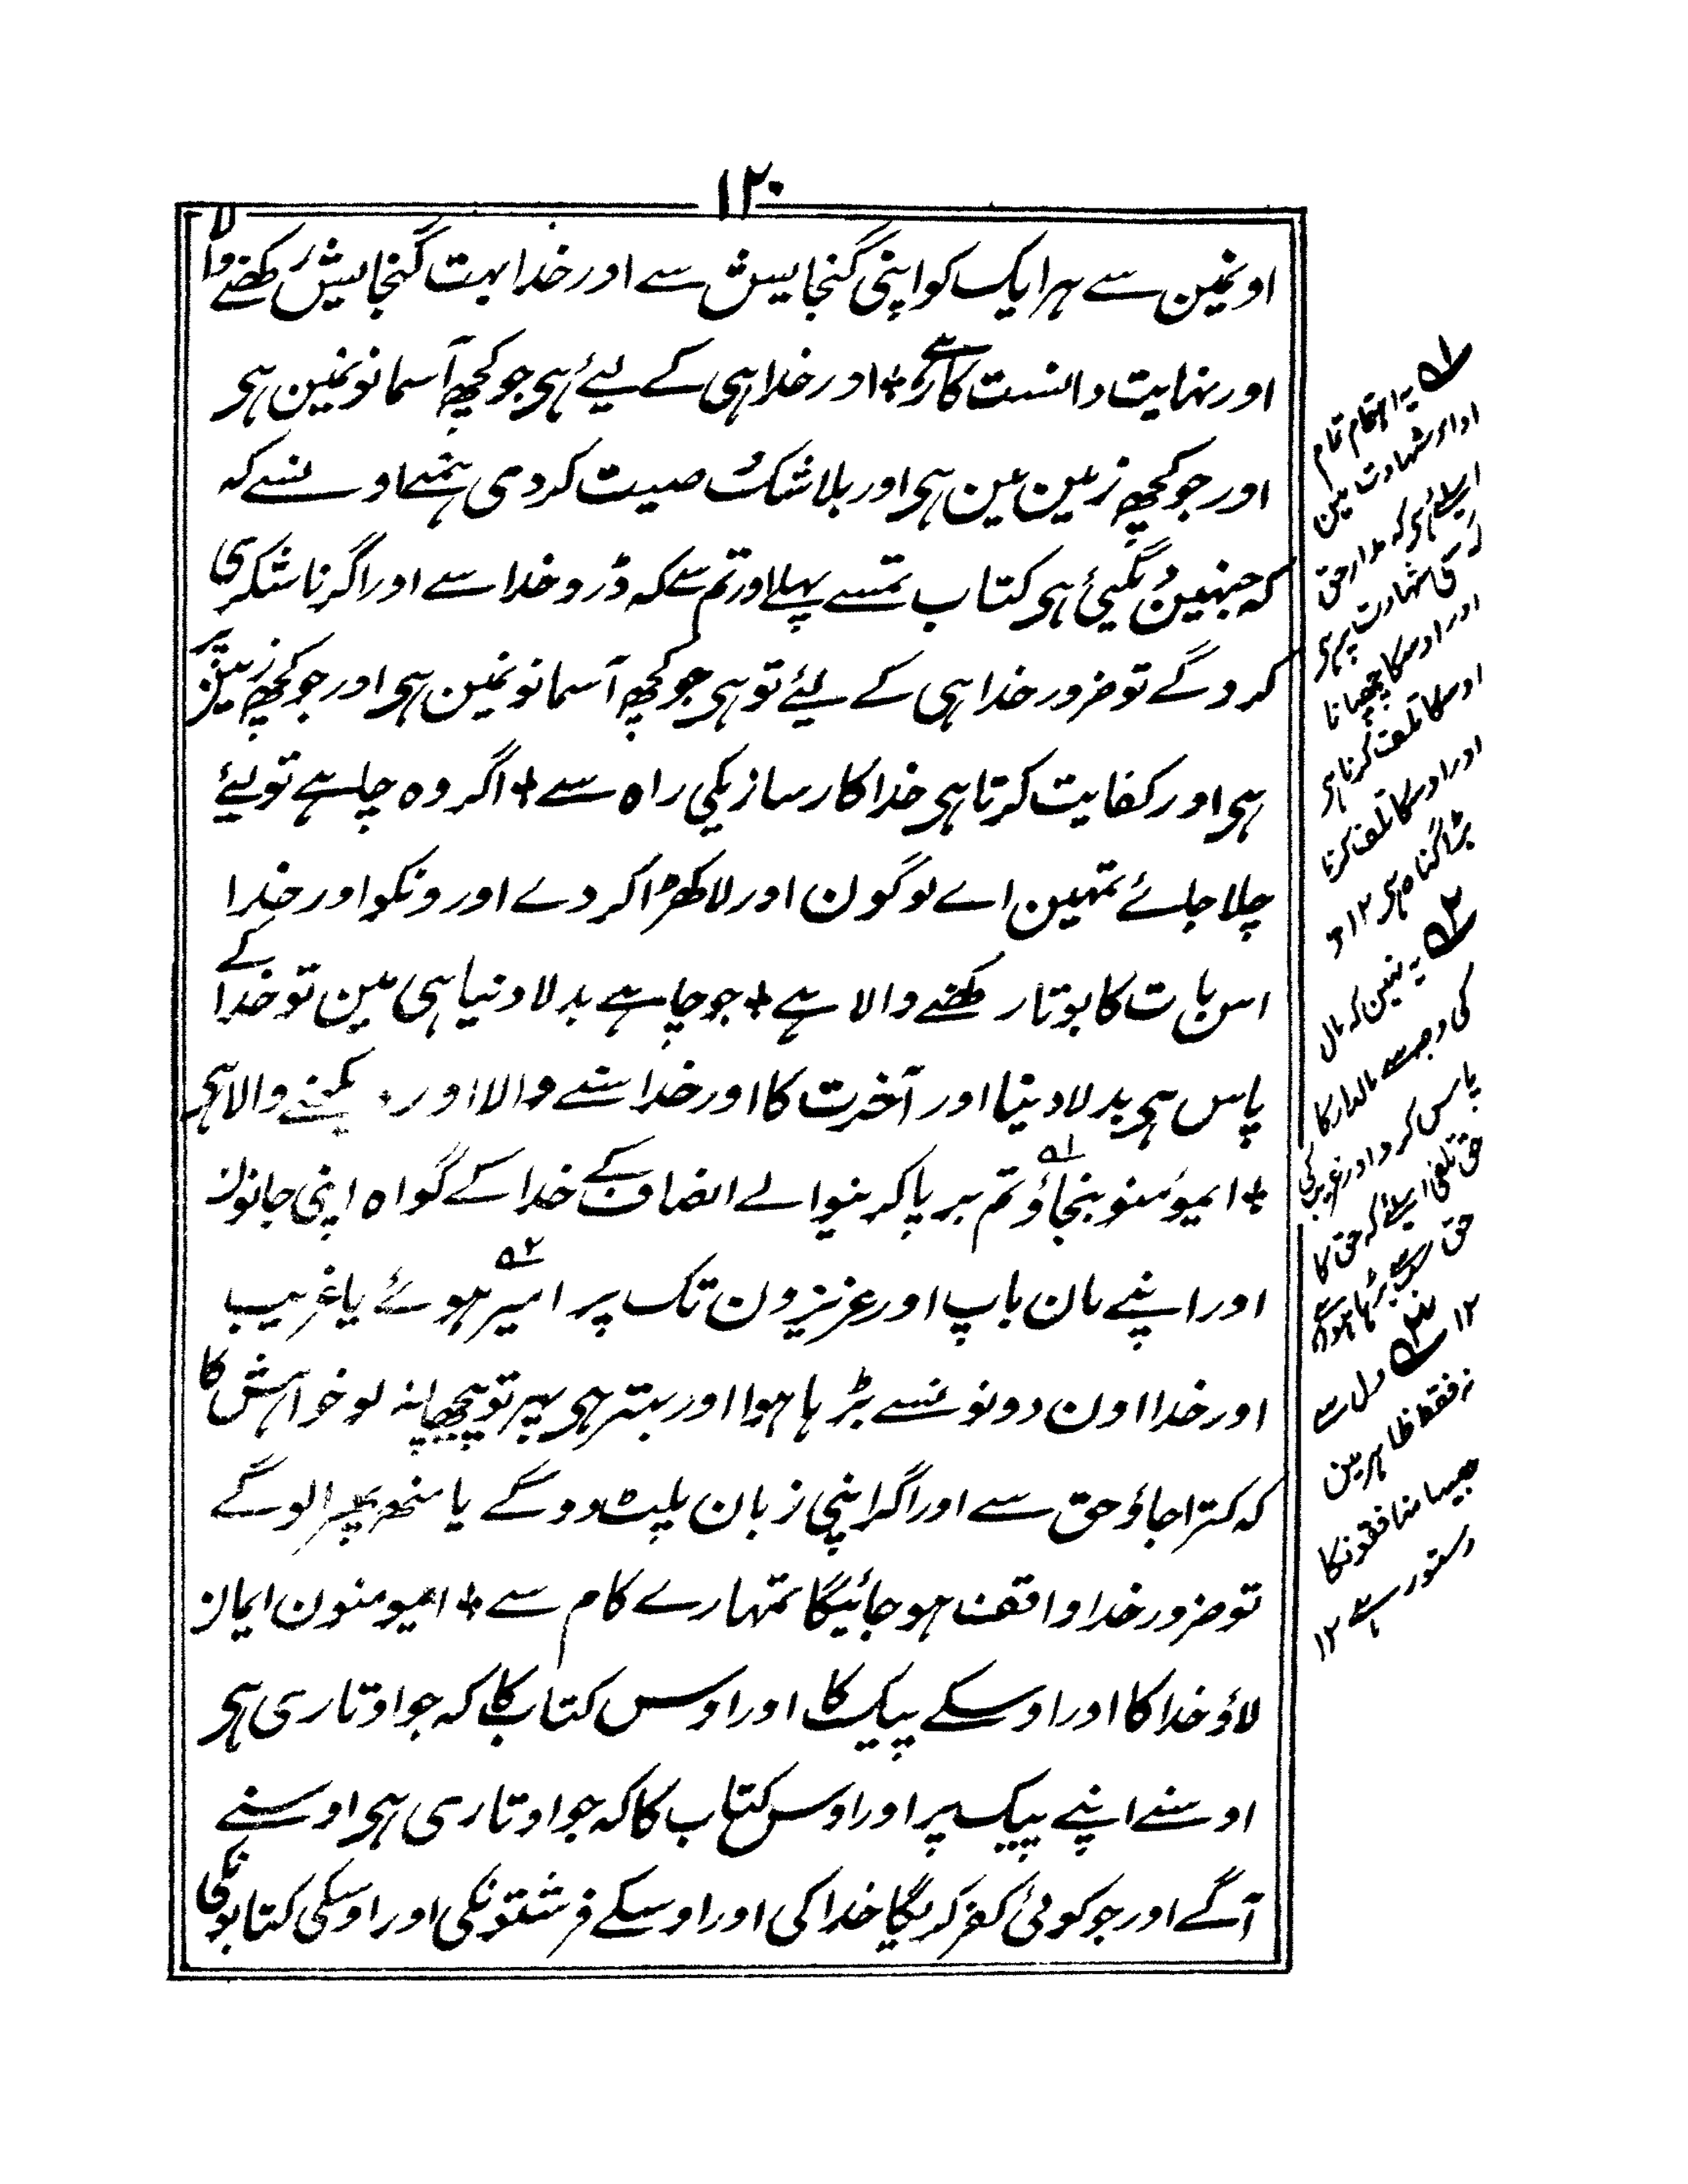 ۱۲۰
اونمین سے ہر ایک کو اپنی گنجایش سے اور خدا بہت گنجایش رکھنے والا
اور نہایت دانست کار ہے + اور خدا ہی کے لیئے ہی جو کچھ آسمانونمین ہی
اور جو کچھ زمین مین ہی اور بلا شک وصیت کردی ہمنے اونسے کہ
کہ جنہین دیگئی ہی کتاب تمسے پہلے اور تم سے کہ ڈرو خدا سے اور اگر ناشکری
کروگے تو ضرور خدا ہی کے لیئے تو ہی جو کچھ آسمانونمین ہی اور جو کچھ زمین مین
ہی اور کفایت کرتا ہی خدا کارسازیکی راہ سے + اگر وہ چاہے تو لیئے
چلا جائے تمہین اے لوگون اور لا کھڑا کردے اور ونکو اور خدا
اس بات کا بوتا رکھنے والا ہے + جو چاہے بدلا دنیا ہی مین تو خدا کے
پاس ہی بدلا دنیا اور آخرت کا اور خدا سننے والا اور دیکھنے والا ہی
+ ایمؤمنو بنجاؤ ۱ تم برپا کرنیوالے انصاف کے خدا کے گواہ اپنی جانون
اور اپنے مان باپ اور عزیزون تک پر امیر ۲ ہوئے یا غریب
اور خدا اون دونونسے بڑہا ہوا اور بہتر ہی پہر تو پیچھا نہ لو خواہش کا
کہ کتراجاؤ حق سے اور اگر اپنی زبان پلٹ دوگے یا منھ پھرالوگے
تو ضرور خدا واقف ہو جائیگا تمہارے کام سے + ایمومنون ایمان
لاؤ خدا کا اور اوسکے پیک کا اور اوس کتاب کا کہ جو اوتاری ہی
اوسنے اپنے پیک پر اور اوس کتاب کا کہ جو اوتاری ہی اوسنے
آگے اور جو کوئی کفر کریگا خدا کی اور اوسکے فرشتونکی اور اوسکی کتابونکی
۱ یہ اہتمام تمام
اداء شہادت مین
اسلیئے ہی کہ مدار حق
کا شہادت پر ہی
اور اوسکا چھپانا
اوسکا تلف کرنا ہی
اور اوسکا تلف کرنا
بڑا گناہ ہی ۱۲
۲ یہ نہین کہ مال
کی وجہ سے مالدار کا
پاس کرو اور غریب کی
حق تلفی اسلیئے کہ حق کا
حق سب سے بڑہا ہوا ہے
۱۲ ۳ دل سے
نہ فقط ظاہر مین
جیسا منافقونکا
دستور ہے ۱۲